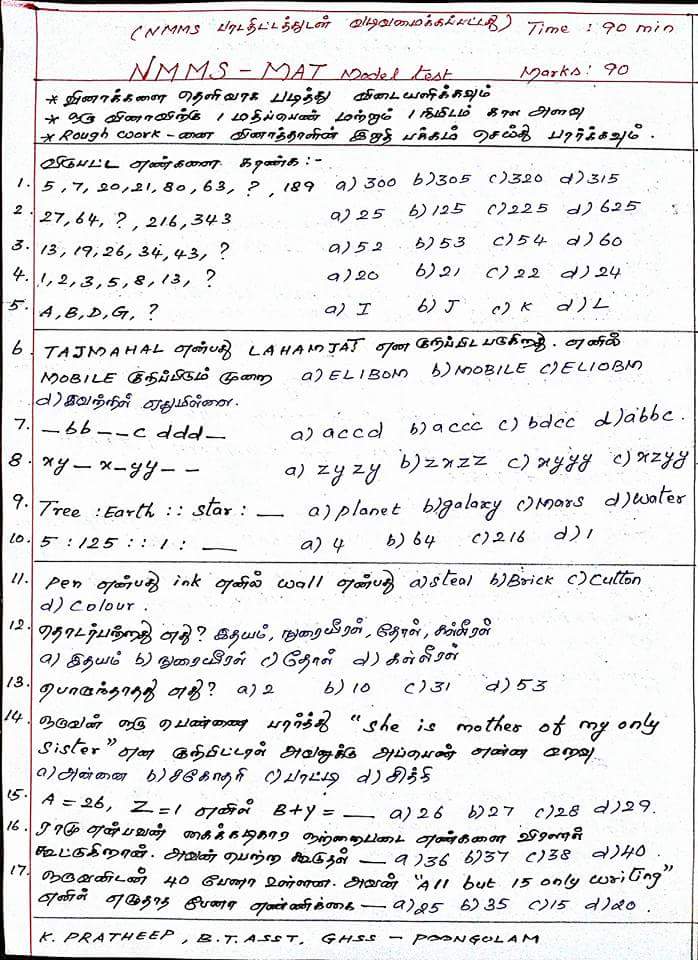 (NMMS பாடதிட்டத்துடன் வடிவமைக்கப்பட்டது) Time : 90 min
NMMS - MAT Model test Marks: 90
* வினாக்களை தெளிவாக படித்து விடையளிக்கவும்
* ஒரு வினாவிற்கு 1 மதிப்பெண் மற்றும் 1 நிமிடம் கால அளவு
* Rough work - னை வினாத்தாளின் இறுதி பக்கம் செய்து பார்க்கவும் .
விடுபட்ட எண்களை காண்க : -
1. 5, 7, 20, 21, 80, 63, ? , 189 a) 300 b) 305 c) 320 d) 315
2. 27, 64, ? , 216, 343 a) 25 b) 125 c) 225 d) 625
3. 13, 19, 26, 34, 43, ? a) 52 b) 53 c) 54 d) 60
4. 1, 2, 3, 5, 8, 13, ? a) 20 b) 21 c) 22 d) 24
5. A, B, D, G, ? a) I b) J c) K d) L
6. TAJMAHAL என்பது LAHAMJAT என குறிப்பிடபடுகிறது. எனில்
MOBILE குறிப்பிடும் முறை a) ELIBOM b) MOBILE c) ELIOBM
d) இவற்றில் ஏதுமில்லை.
7. _bb__c ddd_ a) accd b) accc c) bdcc d) abbc.
8. xy_x_yy__ a) zyzy b) zxzz c) xyyy c) xzyy
9. Tree : Earth :: star : __ a) planet b) galaxy c) Mars d) water
10. 5 : 125 :: 1 : __ a) 4 b) 64 c) 216 d) 1
11. Pen என்பது ink எனில் wall என்பது a) steal b) Brick c) Cutton
d) Colour .
12. தொடர்பற்றது எது? இதயம், நுரையீரல், தோள், கல்லீரல்
a) இதயம் b) நுரையீரல் c) தோள் d) கல்லீரல்
13. பொருந்தாதது எது? a) 2 b) 10 c) 31 d) 53
14. ஒருவன் ஒரு பெண்ணை பார்த்து "She is mother of my only
Sister" என குறிப்பிட்டால் அவனுக்கு அப்பெண் என்ன உறவு
a) அன்னை b) சகோதரி c) பாட்டி d) சித்தி
15. A = 26, Z = 1 எனில் B+Y = __ a) 26 b) 27 c) 28 d) 29.
16. ராமு என்பவன் கைக்கடிகார ஒற்றைபடை எண்களை விரலால்
கூட்டுகிறான். அவன் பெற்ற கூடுதல் __ a) 36 b) 37 c) 38 d) 40 .
17. ஒருவனிடன் 40 பேனா உள்ளன. அவன் "All but 15 only writing"
எனில் எழுதாத பேனா எண்ணிக்கை - a) 25 b) 35 c) 15 d) 20 .
K. PRATHEEP , B.T. ASST, GHSS - POONGOLAM